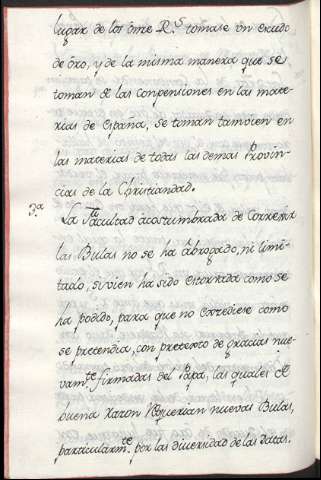 lugar de los ônze R.^s tomase un escudo
de ôro, y de la misma manera que se
toman â las conpensiones en las mate-
rias de España, se toman tambien en
las materias de todas las demas Provin-
cias de la Christiandad.
3.^a La Facultad acostumbrada de Correxir
las Bulas no se ha âbrogado, ni limi-
tado, si vien ha sido estorvada como se
ha podido, para que no excediese como
se pretendia, con pretexto de gracias nue-
vam.^te firmadas del Papa, las quales â
buena razon requerian nuevas Bulas,
particularm.^te por las diversidad de las Datas.